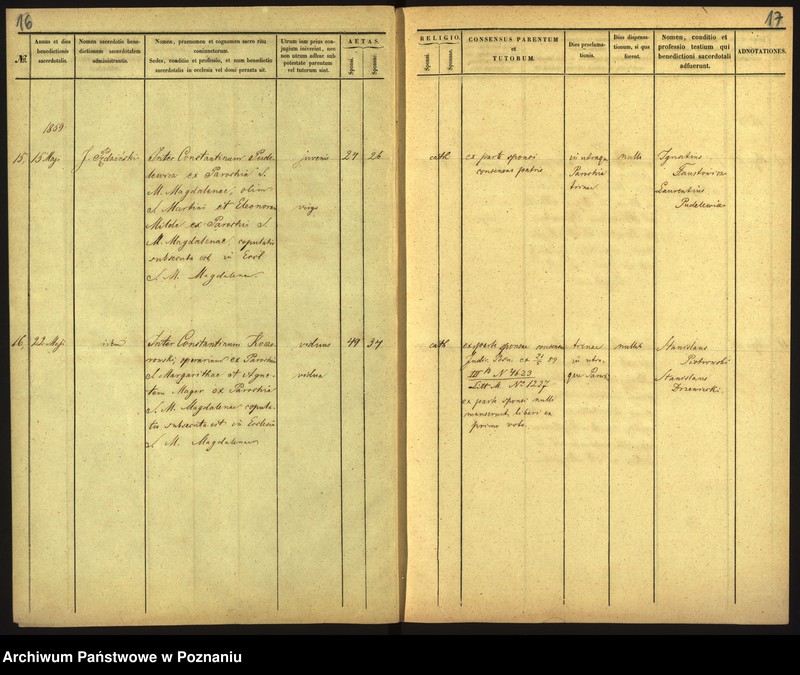 16
№
Annus et dies benedictionis sacerdotalis.
Nomen sacerdotis benedictionum sacerdotalem administrantis.
Nomen, praenomen et cognomen sacro ritu coniunctorum.
Sedes, conditio et professio, et num benedictio sacerdotalis in ecclesia vel domi peracta sit.
Utrum iam prius conjugium inierint, nec non utrum adhuc sub potestate parentum vel tutorum sint.
AETAS.
Sponsi.
Sponsae.
1859
15.
15 Maji
Inter Constantinum Pude
lewicz ex Parochia S.
M. Magdalenae, olim
S. Martini et Eleonora
Milde ex Parochia S.
M. Magdalenae, copulatio
subsecuta est in Eccl
S. M. Magdalenae.
juvenis
virgo
27
26
16.
22 Maji
idem
Inter Constantinum
ex Parochia
S. Margarithae et Agne-
tem Mager ex Parochia
S. M. Magdalenae copula-
tio subsecuta est in Ecclesia
S. M. Magdalenae
viduus
vidua
49
37
17
RELIGIO.
Sponsi.
Sponsae.
CONSENSUS PARENTUM
et
TUTORUM.
Dies proclamationis.
Dies dispensationum, si qua fuerunt.
Nomen, conditio et professio testium qui benedictioni sacerdotali adfuerunt.
ADNOTATIONES.
cath
ex parte sponsi
consensus patris
in utraque
Parochia
trinae
nulla
Ignatius
Faustowicz
Laurentius
Pudelewicz
cath
ex parte sponsae consensus
Judic. Posn. ex
III
N 4623
Litt M. No 1237
ex parte sponsi nulli
manserunt liberi ex
primo voto.
trinae
in utra-
que Paroch
nulla
Stanislaus
Piotrowski
Stanislaus
Drzewiecki.
Archiwum Państwowe w Poznaniu